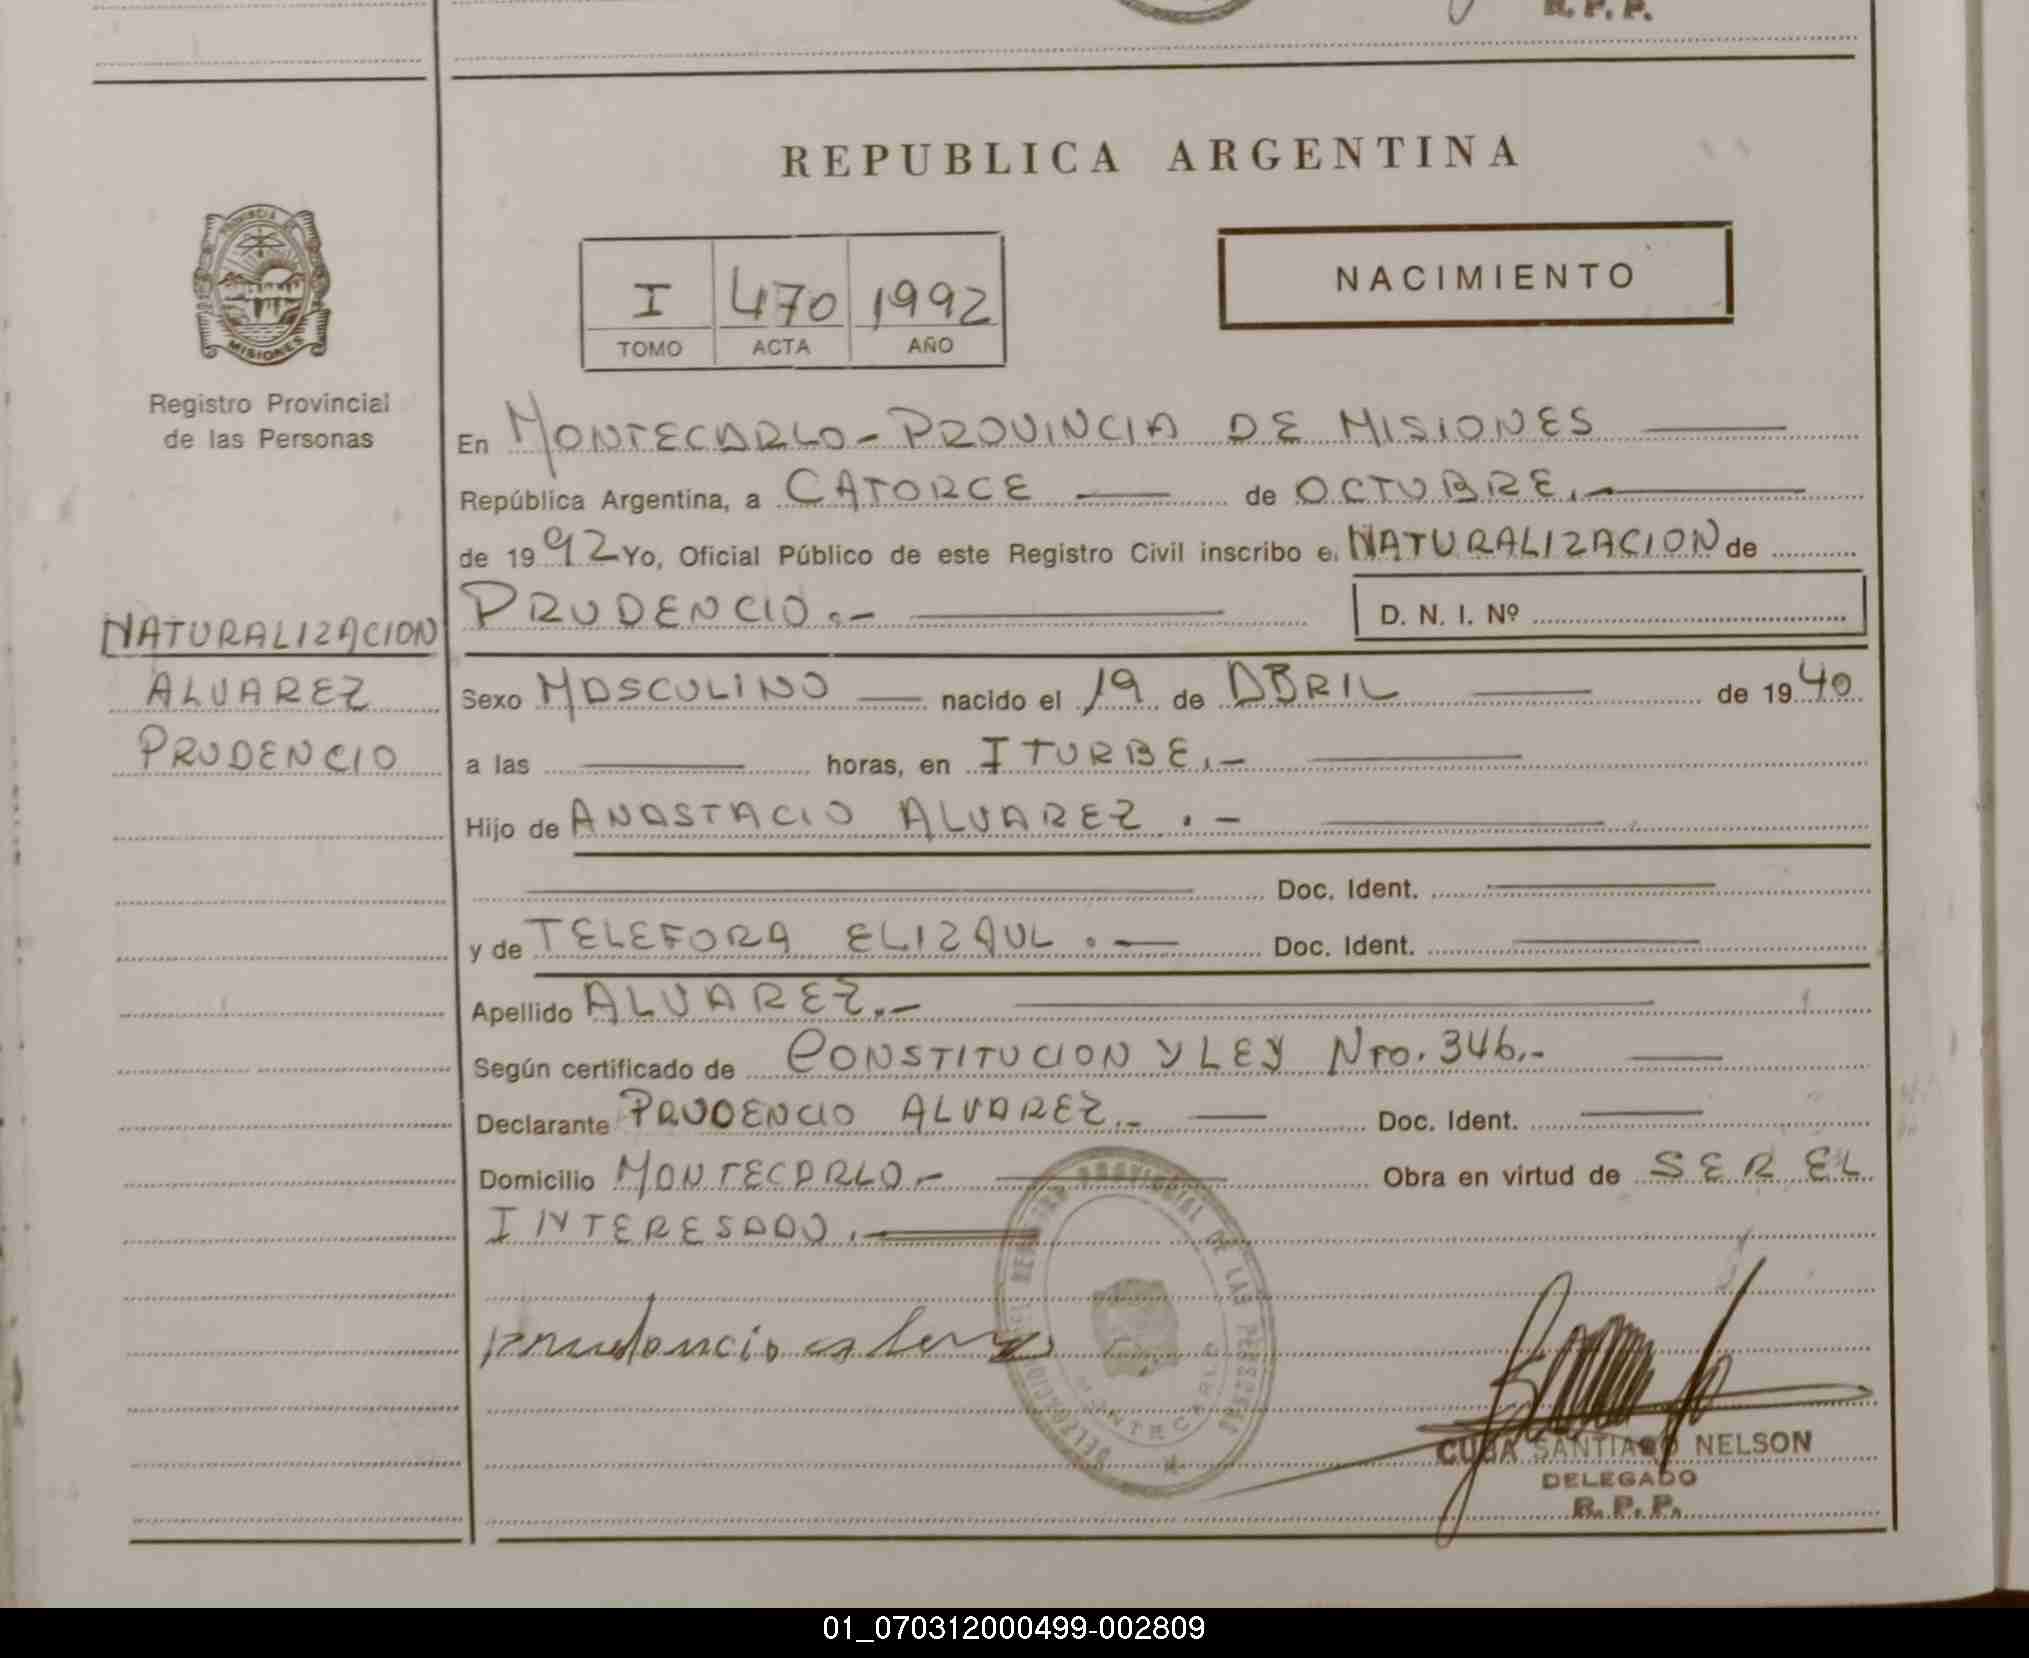 R. P. P.
REPUBLICA ARGENTINA
PROVINCIA DE
MISIONES
Registro Provincial
de las Personas
I 470 1992
TOMO ACTA AÑO
NACIMIENTO
En MONTECARLO - PROVINCIA DE MISIONES
República Argentina, a CATORCE de OCTUBRE.-
de 1992 Yo, Oficial Público de este Registro Civil inscribo e. NATURALIZACION de
PRUDENCIO.-
D. N. I. Nº
NATURALIZACION
ALVAREZ
PRUDENCIO
Sexo MASCULINO nacido el 19 de ABRIL de 1940
a las horas, en ITURBE.-
Hijo de ANASTACIO ALVAREZ.-
Doc. Ident.
y de TELEFORA ELIZAUL.- Doc. Ident.
Apellido ALVAREZ.-
Según certificado de CONSTITUCION Y LEY Nro. 346.-
Declarante PRUDENCIO ALVAREZ.- Doc. Ident.
Domicilio MONTECARLO.- Obra en virtud de SER EL
INTERESADO.-
prudencio
REGISTRO PROVINCIAL DE LAS PERSONAS
DELEGACION
MONTECARLO
CUBA SANTIAGO NELSON
DELEGADO
R. P. P.
01_070312000499-002809